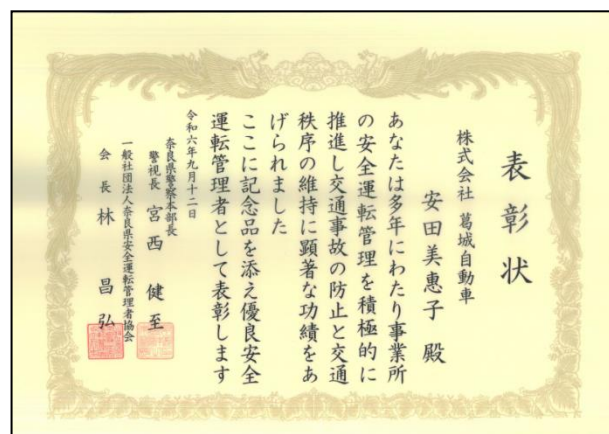 表彰状
株式会社 葛城自動車
安田美惠子 殿
あなたは多年にわたり事業所
の安全運転管理を積極的に
推進し交通事故の防止と交通
秩序の維持に顕著な功績をあ
げられました
ここに記念品を添え優良安全
運転管理者として表彰します
令和六年九月十二日
奈良県警察本部長
警視長 宮西 健至
一般社団法人奈良県安全運転管理者協会
会長 林 昌弘